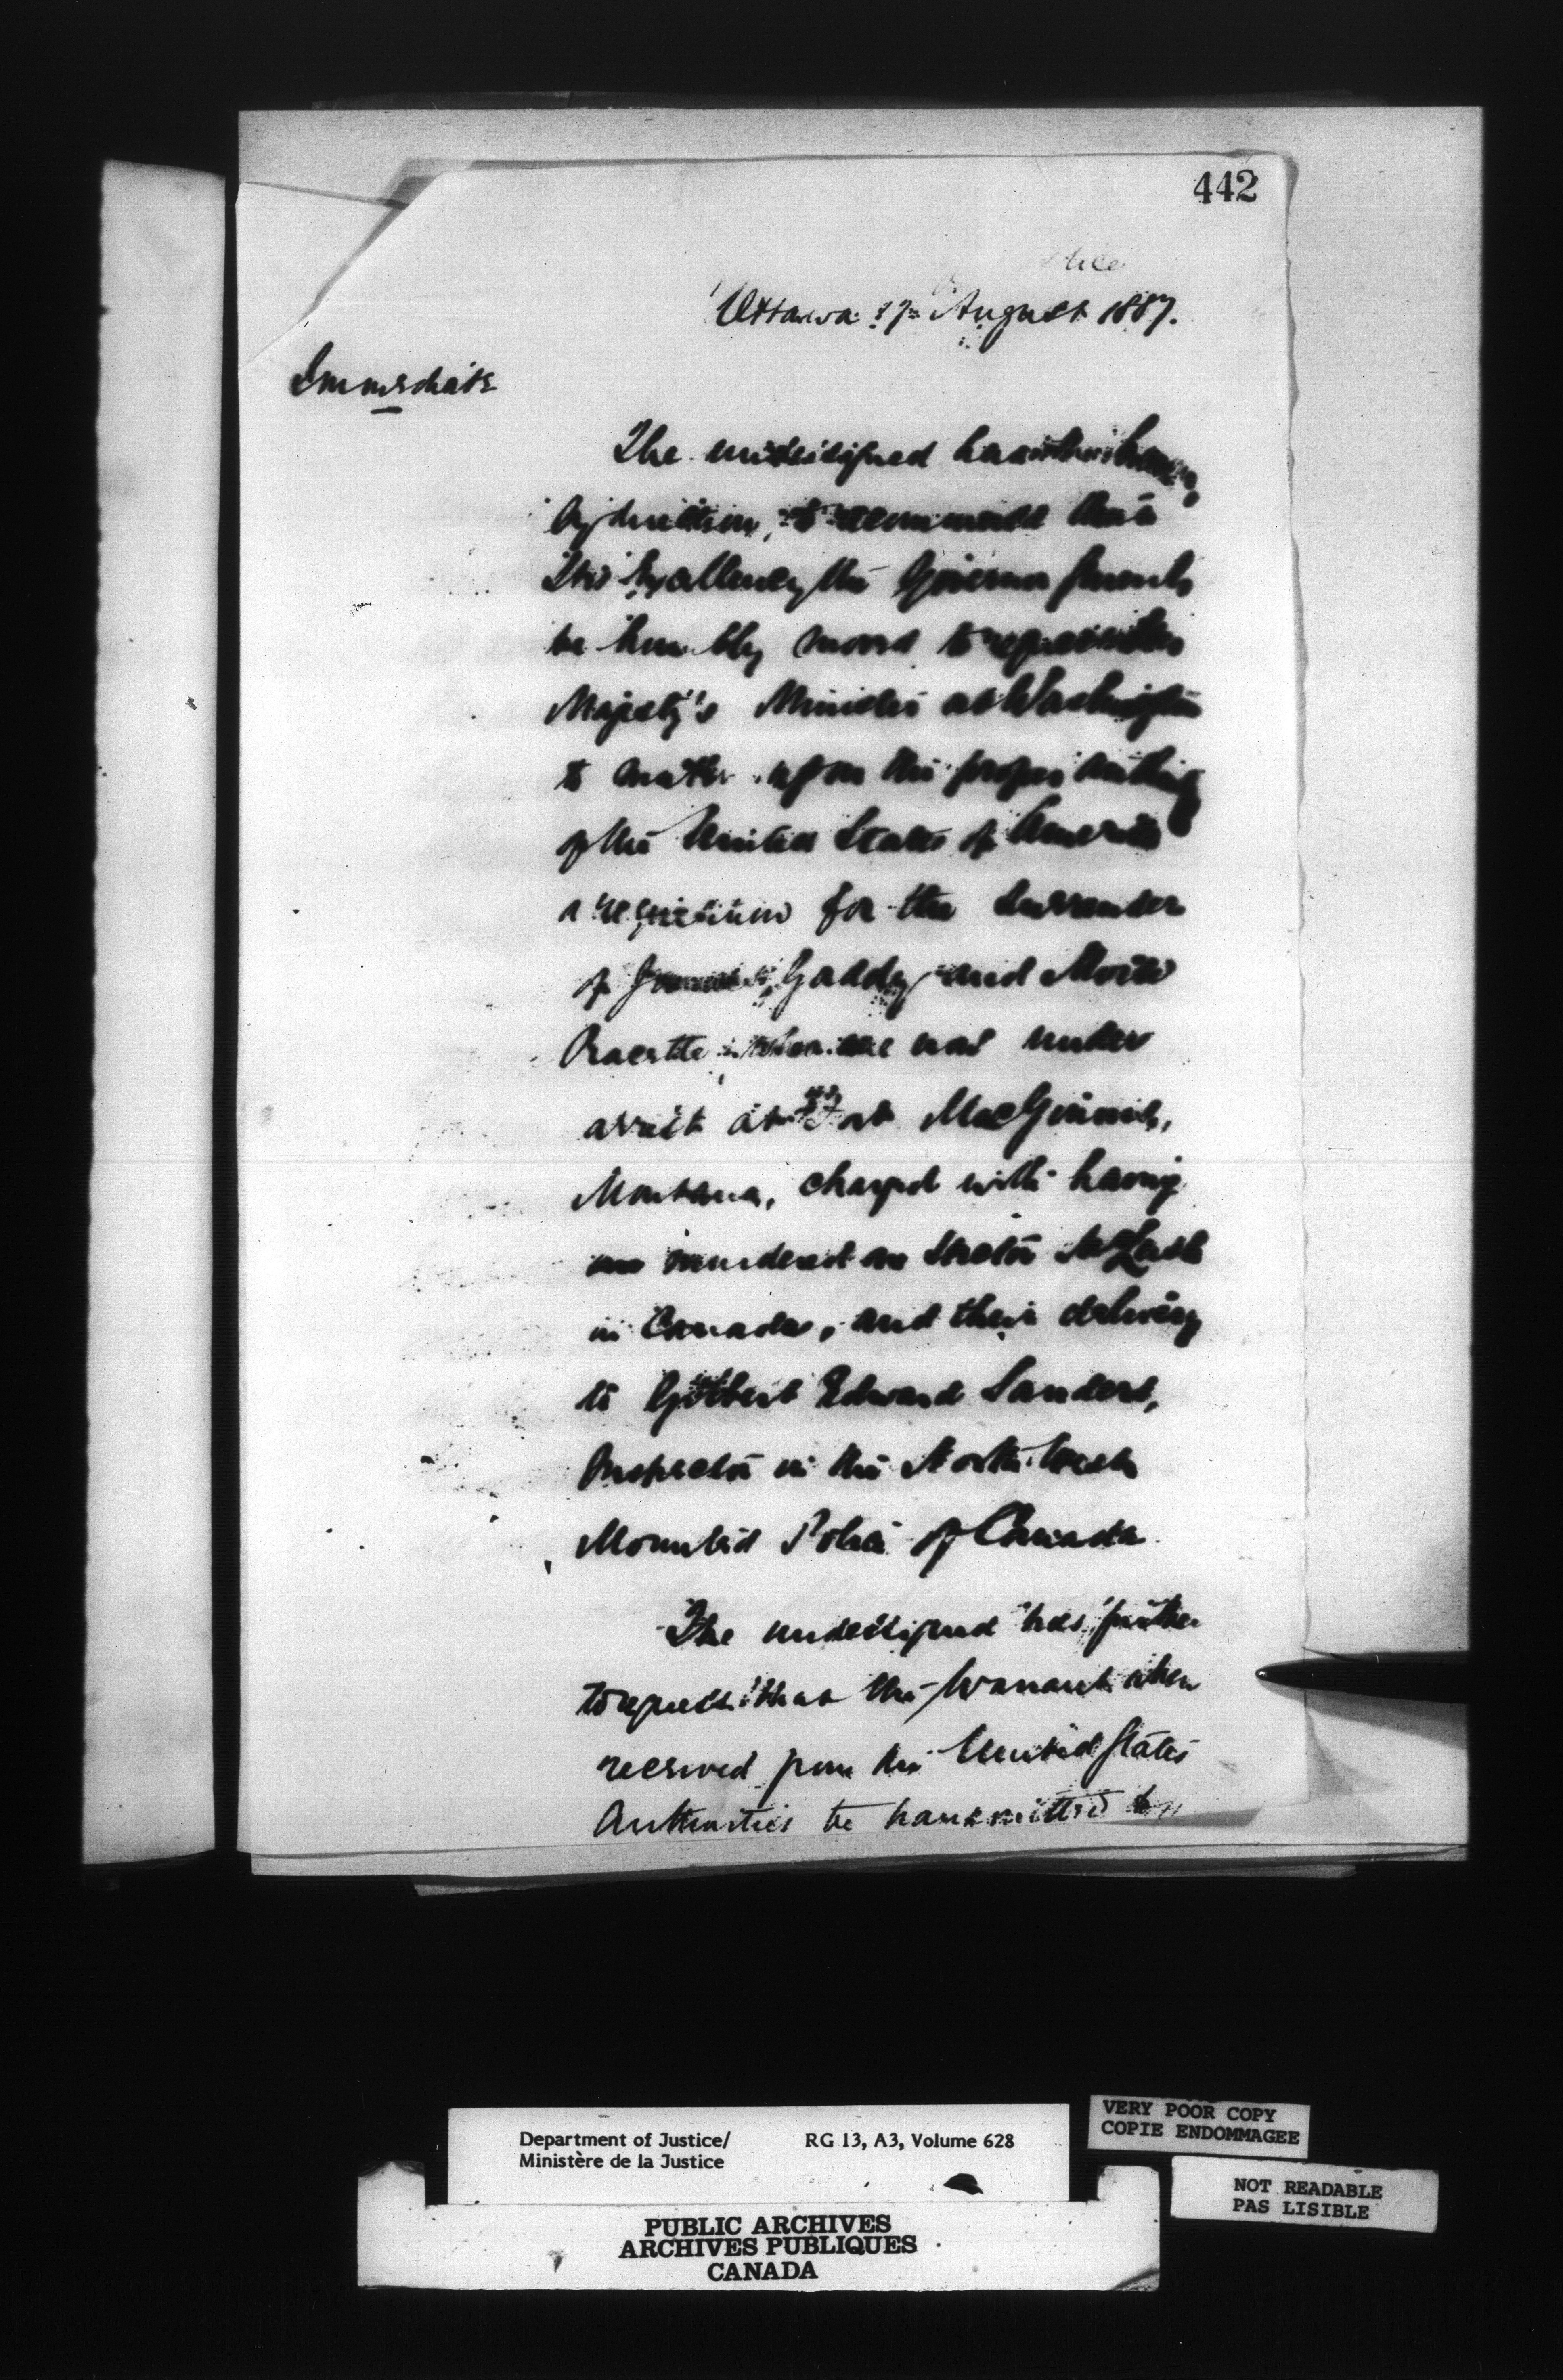 442
Ottawa 17th August 1887.
Immediate
The undersigned has the honour,
by direction, to recommend that
His Excellency the Governor General
be humbly moved to request Her
Majesty's Minister at Washington
to make upon the proper authority
of the United States of America
a requisition for the surrender
of Gaddy and Moise
Racette now under
arrest at Fort MacGinnis,
Montana, charged with having
murdered Hector McLeish
in Canada, and their delivery
to Gilbert Edward Sanders,
Inspector in the North West
Mounted Police of Canada.
The undersigned has further
to request that the Warrant when
received from the United States
Authorities be transmitted to
Department of Justice/
Ministère de la Justice
RG 13, A3, Volume 628
VERY POOR COPY
COPIE ENDOMMAGEE
NOT READABLE
PAS LISIBLE
PUBLIC ARCHIVES
ARCHIVES PUBLIQUES
CANADA